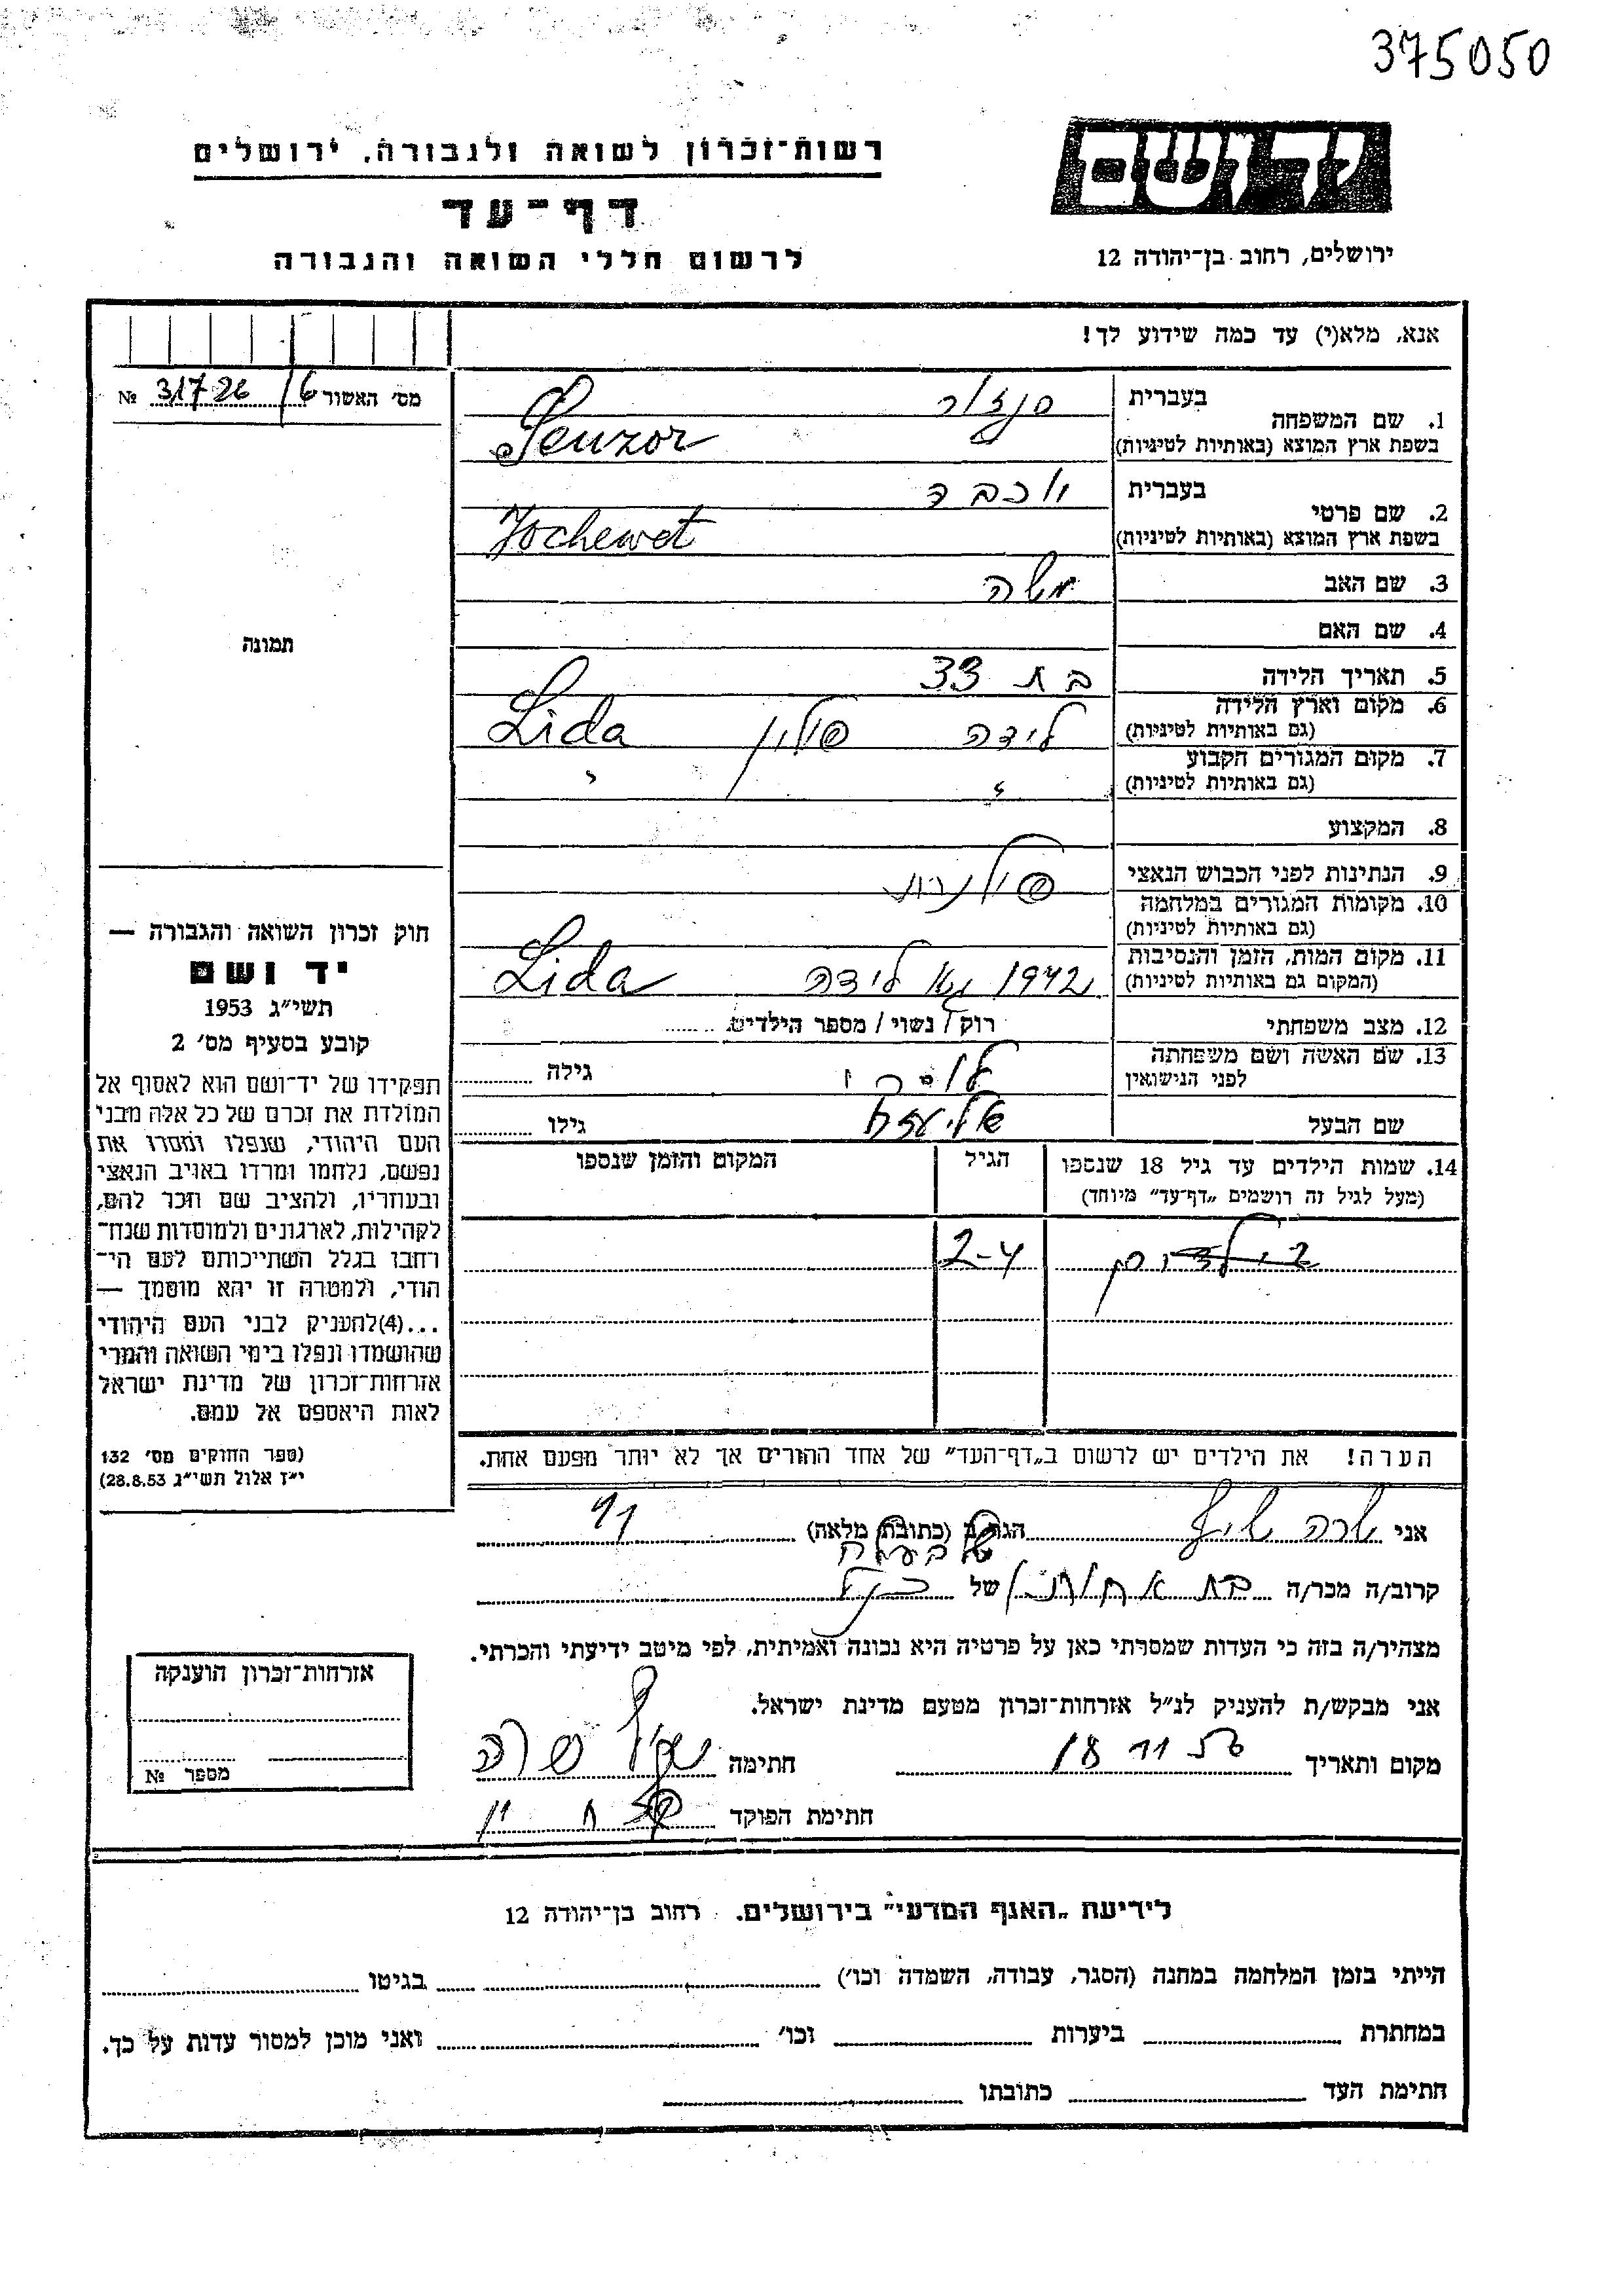 375050
יד ושם
רשות־זכרון לשואה ולגבורה, ירושלים
דף־עד
לרשום חללי השואה והגבורה
ירושלים, רחוב בן־יהודה 12
אנא, מלא(י) עד כמה שידוע לך!
מס׳ האשור 6/ 31726 №
תמונה
1. שם המשפחה
בעברית סנזור
בשפת ארץ המוצא (באותיות לטיניות) Senzor
2. שם פרטי
בעברית יוכבד
בשפת ארץ המוצא (באותיות לטיניות) Jochewet
3. שם האב משה
4. שם האם
5. תאריך הלידה בת 33
6. מקום וארץ הלידה לידה פולין Lida
(גם באותיות לטיניות)
7. מקום המגורים הקבוע
(גם באותיות לטיניות)
8. המקצוע
9. הנתינות לפני הכבוש הנאצי
10. מקומות המגורים במלחמה
(גם באותיות לטיניות)
11. מקום המות, הזמן והנסיבות 1942 לידה Lida
(המקום גם באותיות לטיניות)
12. מצב משפחתי רוק / נשוי / מספר הילדים
13. שם האשה ושם משפחתה גילה
לפני הנישואין
שם הבעל גילו
14. שמות הילדים עד גיל 18 שנספו הגיל המקום והזמן שנספו
(מעל לגיל זה רושמים „דף־עד״ מיוחד)
2-4
הערה! את הילדים יש לרשום ב„דף־העד״ של אחד ההורים אך לא יותר מפעם אחת.
חוק זכרון השואה והגבורה —
יד ושם
תשי״ג 1953
קובע בסעיף מס׳ 2
תפקידו של יד־ושם הוא לאסוף אל
המולדת את זכרם של כל אלה מבני
העם היהודי, שנפלו ומסרו את
נפשם, נלחמו ומרדו באויב הנאצי
ובעוזריו, ולהציב שם וזכר להם,
לקהילות, לארגונים ולמוסדות שנח־
רחבו בגלל השתייכותם לעם הי־
הודי, ולמטרה זו יהא מוסמך —
...(4)להעניק לבני העם היהודי
שהושמדו ונפלו בימי השואה והמרי
אזרחות־זכרון של מדינת ישראל
לאות היאספם אל עמם.
(ספר החוקים מס׳ 132
י״ז אלול תשי״ג 28.8.53)
אני שרה הגר ב (כתובת מלאה)
קרוב/ה מכר/ה בת של
מצהיר/ה בזה כי העדות שמסרתי כאן על פרטיה היא נכונה ואמיתית, לפי מיטב ידיעתי והכרתי.
אני מבקש/ת להעניק לנ״ל אזרחות־זכרון מטעם מדינת ישראל.
מקום ותאריך 18 11 חתימה שרה
חתימת הפוקד
אזרחות־זכרון הוענקה
מספר №
לידיעת „האגף המדעי״ בירושלים. רחוב בן־יהודה 12
הייתי בזמן המלחמה במחנה (הסגר, עבודה, השמדה וכו׳) בגיטו
במחתרת ביערות וכו׳ ואני מוכן למסור עדות על כך.
חתימת העד כתובתו